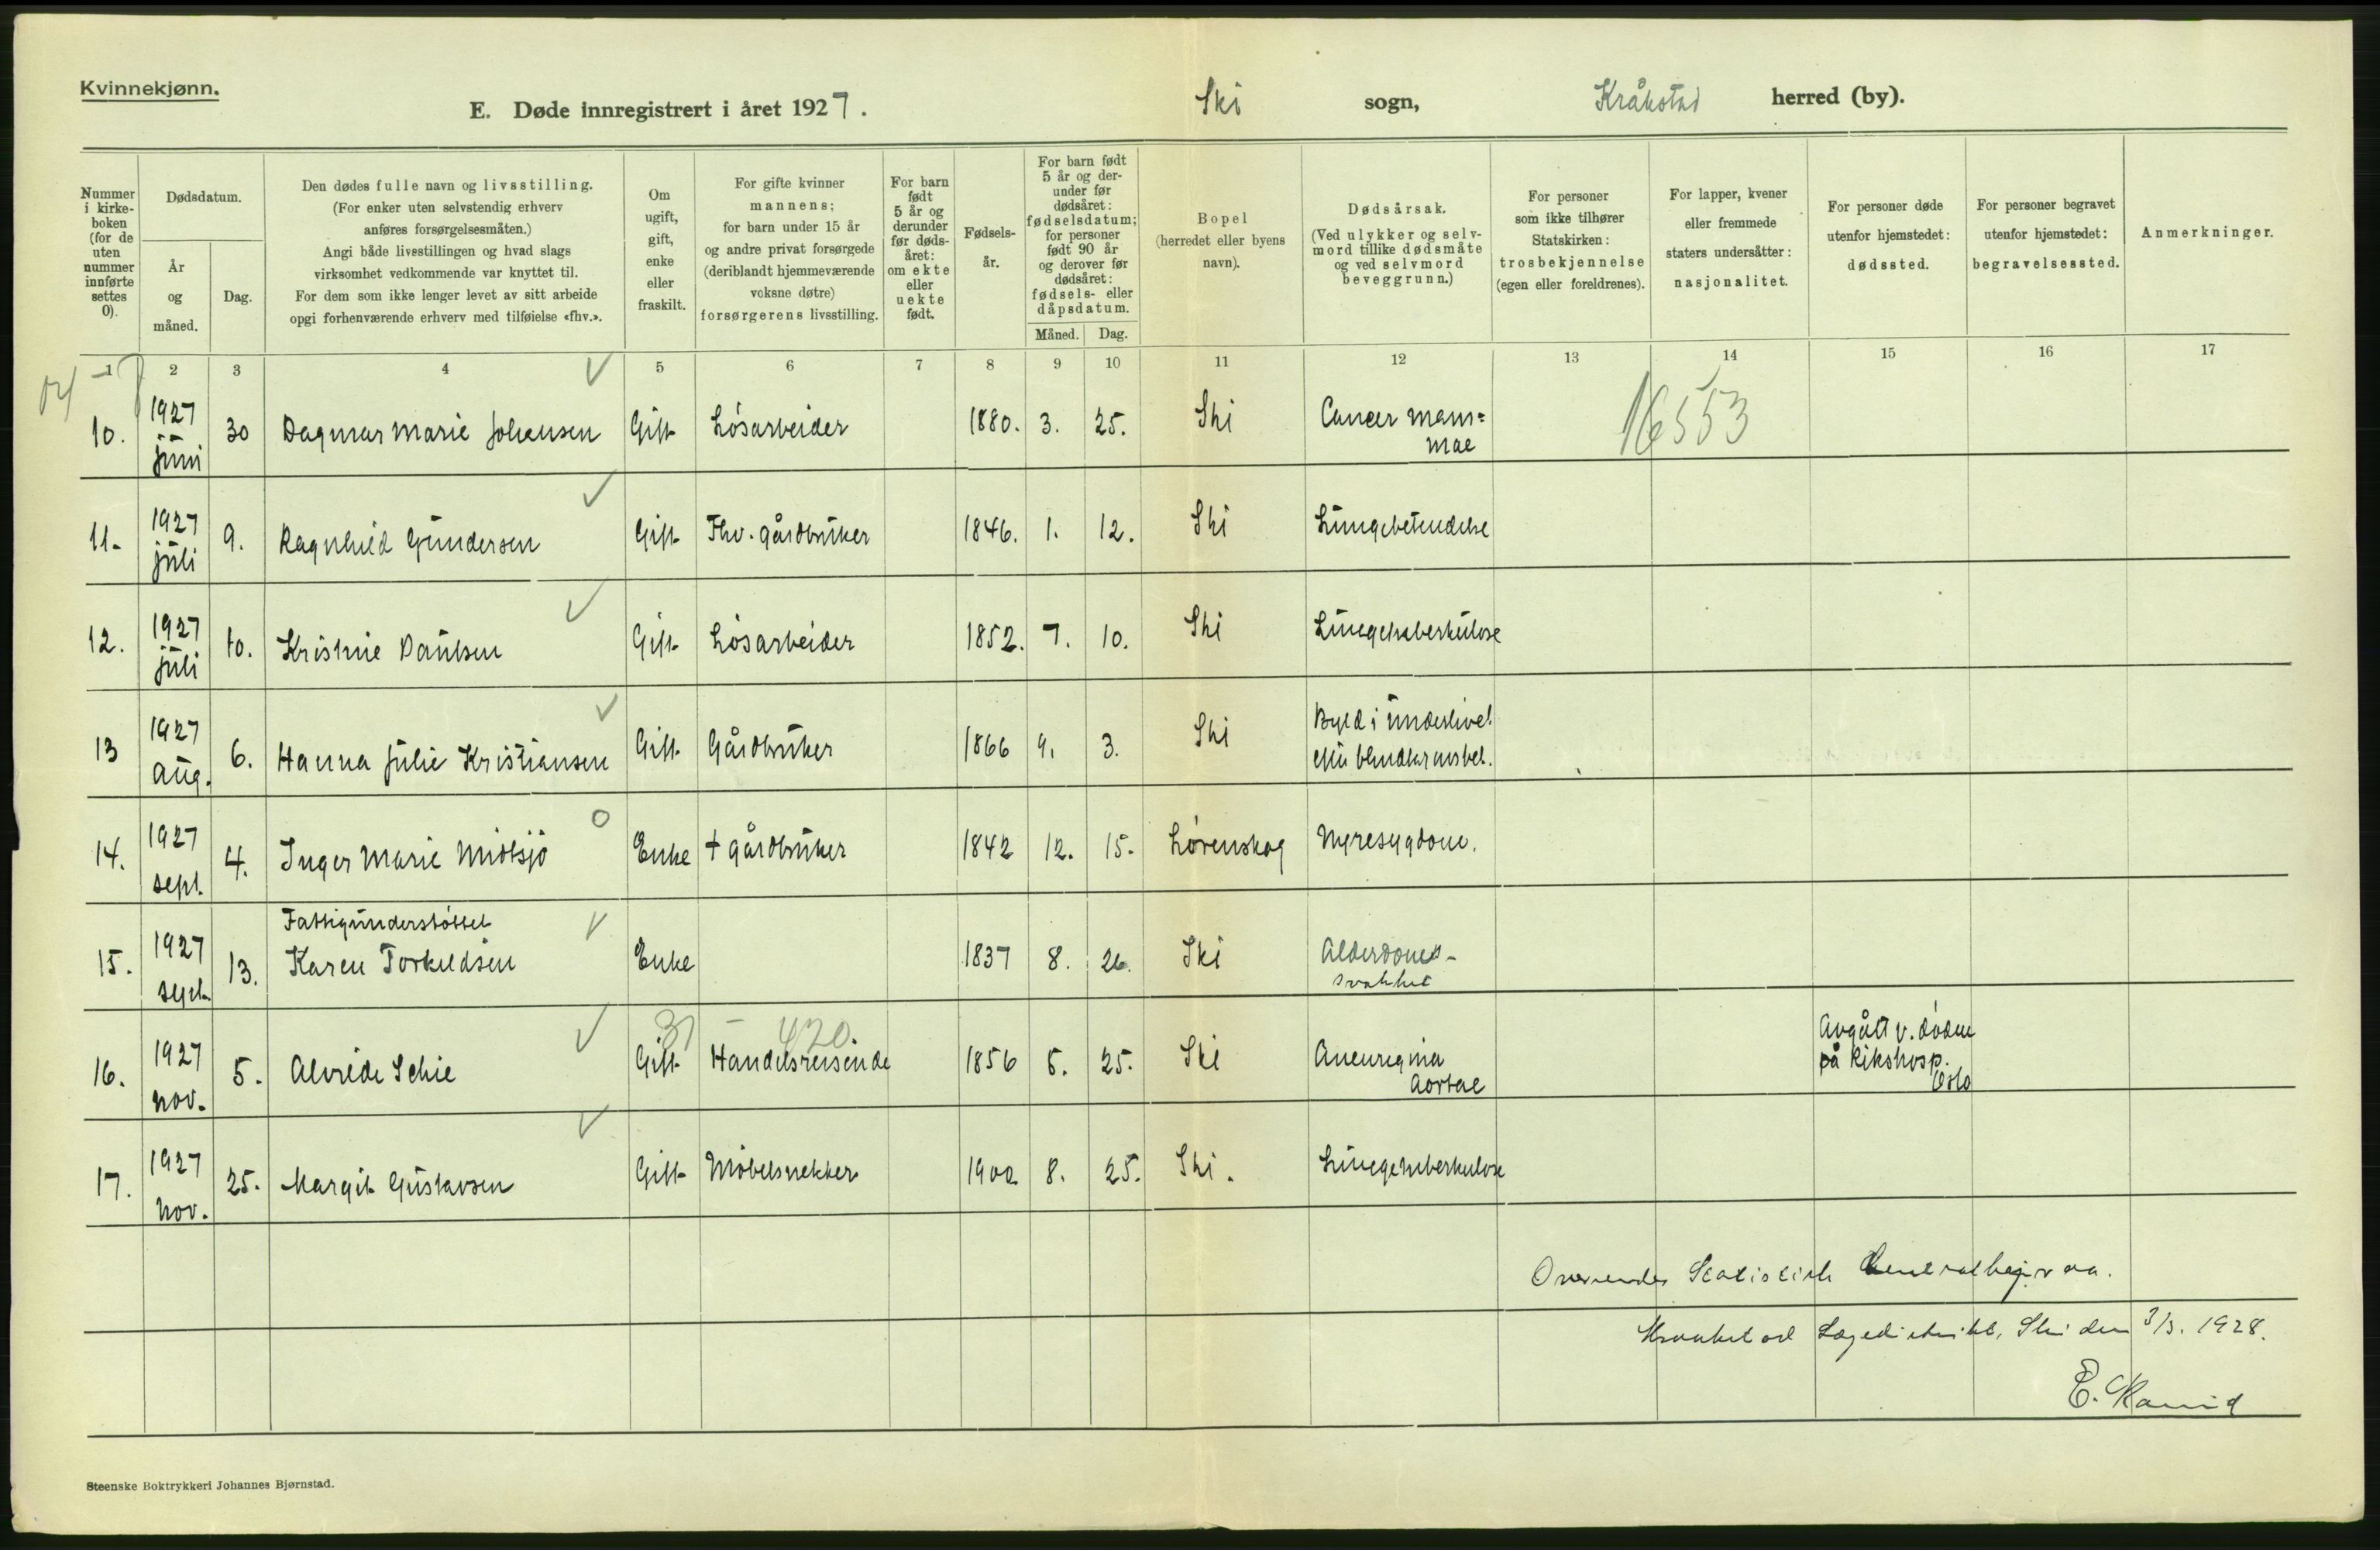 Kvinnekjønn.
E. Døde innregistrert i året 1927.
Ski sogn, Kråkstad herred (by).
Nummer
i kirke-
boken
(for de
uten
nummer
innførte
settes
0).
Dødsdatum.
År
og
måned.
Dag.
Den dødes fulle navn og livsstilling.
(For enker uten selvstendig erhverv
anføres forsørgelsesmåten.)
Angi både livsstillingen og hvad slags
virksomhet vedkommende var knyttet til.
For dem som ikke lenger levet av sitt arbeide
opgi forhenværende erhverv med tilføielse «fhv.».
Om
ugift,
gift,
enke
eller
fraskilt.
For gifte kvinner
mannens;
for barn under 15 år
og andre privat forsørgede
(deriblandt hjemmeværende
voksne døtre)
forsørgerens livsstilling.
For barn
født
5 år og
derunder
før døds-
året:
om ekte
eller
uekte
født.
Fødsels-
år.
For barn født
5 år og der-
under før
dødsåret:
fødselsdatum;
for personer
født 90 år
og derover før
dødsåret:
fødsels- eller
dåpsdatum.
Måned. Dag.
Bopel
(herredet eller byens
navn).
Dødsårsak.
(Ved ulykker og selv-
mord tillike dødsmåte
og ved selvmord
beveggrunn.)
For personer
som ikke tilhører
Statskirken:
trosbekjennelse
(egen eller foreldrenes).
For lapper, kvener
eller fremmede
staters undersåtter:
nasjonalitet.
For personer døde
utenfor hjemstedet:
dødssted.
For personer begravet
utenfor hjemstedet:
begravelsessted.
Anmerkninger.
1 2 3 4 5 6 7 8 9 10 11 12 13 14 15 16 17
10. 1927 juni 30 Dagmar Marie Johansen Gift Løsarbeider 1880. 3. 25. Ski Cancer mam=
mae
16553
11. 1927 juli 9. Ragnhild Gundersen Gift Fhv. gårdbruker 1846. 1. 12. Ski Lungebetendelse
12. 1927 juli 10. Kristine Paulsen Gift Løsarbeider 1852. 7. 10. Ski Lungetuberkulose
13 1927 aug. 6. Hanna Julie Kristiansen Gift Gårdbruker 1866 9. 3. Ski Byld i underlivet
efter blindtarmsbet.
14. 1927 sept. 4. Inger Marie Midtsjø Enke + gårdbruker 1842 12. 15. Lørenskog Nyresygdom.
Fattigunderstøttet
15. 1927 sept. 13. Karen Torkildsen Enke 1837 8. 26. Ski Alderdoms-
svakhet
31 - 420.
16. 1927 nov. 5. Alvide Schie Gift Handelsreisende 1856 5. 25. Ski Aneurysma
Aortae
Avgått v. døden
på Rikshosp.
Oslo
17. 1927 nov. 25. Margit Gustavsen Gift Møbelsnekker 1900 8. 25. Ski. Lungetuberkulose
Oversendes Statistisk Centralbyraa.
Kraakstad Lægedistrikt, Ski den 3/3. 1928.
E.
Steenske Boktrykkeri Johannes Bjørnstad.